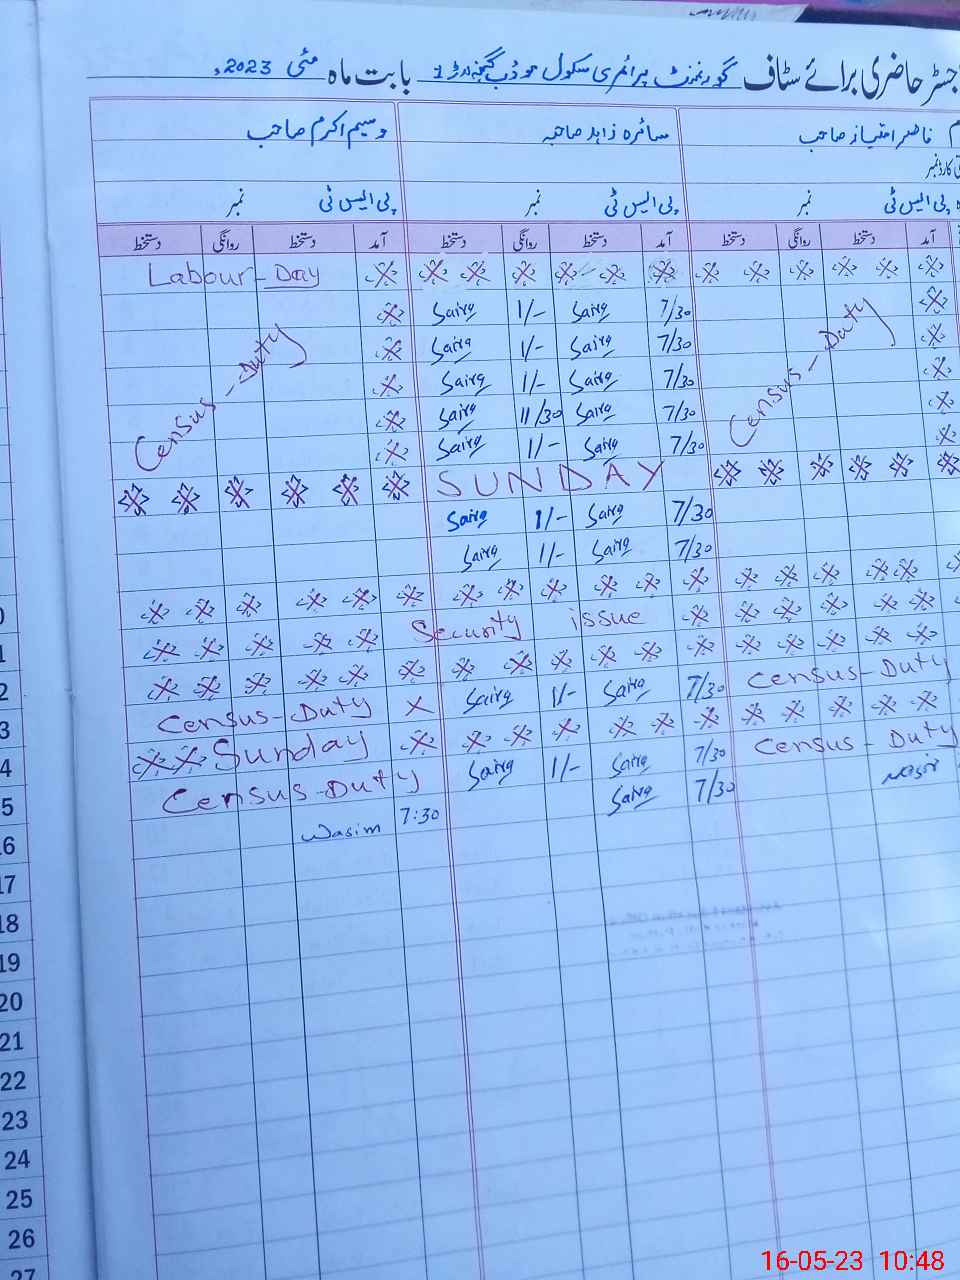 جسٹر حاضری برائے سٹاف گورنمنٹ پرائمری سکول بابت ماہ مئی 2023ء
ناصر امتیاز صاحب سائرہ زاہد صاحبہ وسیم اکرم صاحب
پی ایس ٹی نمبر پی ایس ٹی نمبر پی ایس ٹی نمبر
آمد دستخط روانگی دستخط آمد دستخط روانگی دستخط آمد دستخط روانگی دستخط
Labour - Day
Saira 1/- Saira 7/30
Saira 1/- Saira 7/30
Saira 1/- Saira 7/30
Saira 11/30 Saira 7/30
Saira 1/- Saira 7/30
Census - Duty
Census - Duty
SUNDAY
Saira 1/- Saira 7/30
Saira 1/- Saira 7/30
Security issue
Census - Duty X Saira 1/- Saira 7/30 Census - Duty
Sunday
Census - Duty Saira 1/- Saira 7/30 Census - Duty
Wasim 7:30 Saira 7/30 Nasir
0
1
2
3
4
5
16
17
18
19
20
21
22
23
24
25
26
27
16-05-23 10:48